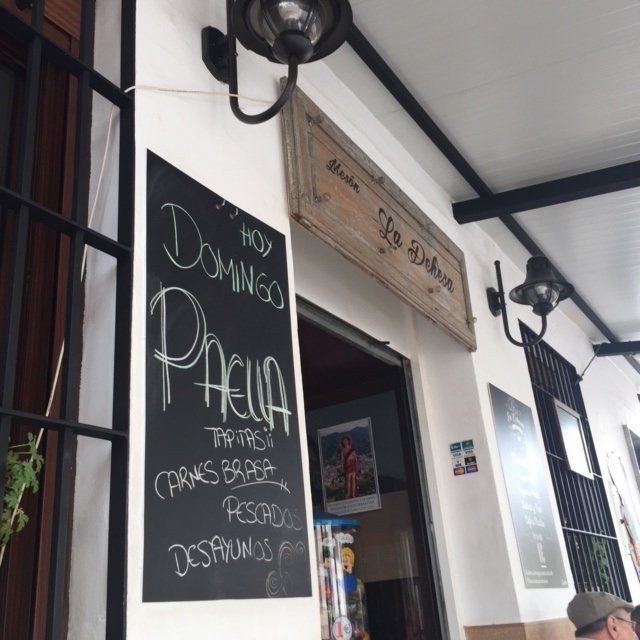 HOY
DOMINGO
PAELLA
TAPITAS¡¡
CARNES BRASA
PESCADOS
DESAYUNOS
Mesón
La Dehesa